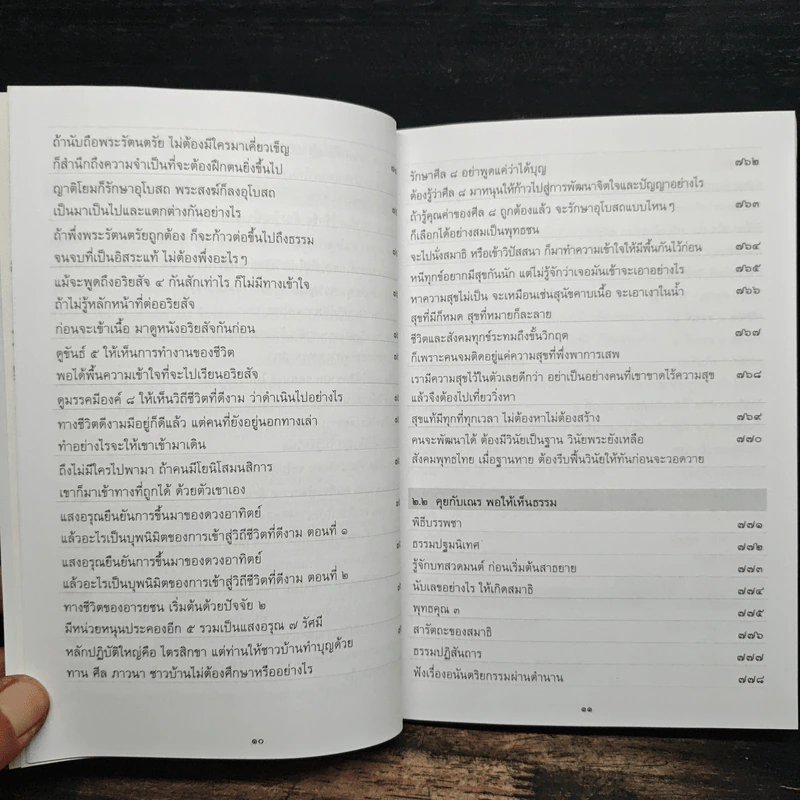 ถ้านับถือพระรัตนตรัย ไม่ต้องมีใครมาเคี่ยวเข็ญ
ก็สำนึกถึงความจำเป็นที่จะต้องฝึกตนยิ่งขึ้นไป
ญาติโยมก็รักษาอุโบสถ พระสงฆ์ก็ลงอุโบสถ
เป็นมาเป็นไปและแตกต่างกันอย่างไร
ถ้าพึ่งพระรัตนตรัยถูกต้อง ก็จะก้าวต่อขึ้นไปถึงธรรม
จนจบที่เป็นอิสระแท้ ไม่ต้องพึ่งอะไรๆ
แม้จะพูดถึงอริยสัจ ๔ กันสักเท่าไร ก็ไม่มีทางเข้าใจ
ถ้าไม่รู้หลักหน้าที่ต่ออริยสัจ
ก่อนจะเข้าเนื้อ มาดูหนังอริยสัจกันก่อน
ดูขันธ์ ๕ ให้เห็นการทำงานของชีวิต
พอได้พื้นความเข้าใจที่จะไปเรียนอริยสัจ
ดูมรรคมีองค์ ๘ ให้เห็นวิถีชีวิตที่ดีงาม ว่าดำเนินไปอย่างไร
ทางชีวิตดีงามมีอยู่ก็ดีแล้ว แต่คนที่ยังอยู่นอกทางเล่า
ทำอย่างไรจะให้เขาเข้ามาเดิน
ถึงไม่มีใครไปพามา ถ้าคนมีโยนิโสมนสิการ
เขาก็มาเข้าทางที่ถูกได้ ด้วยตัวเขาเอง
แสงอรุณยืนยันการขึ้นมาของดวงอาทิตย์
แล้วอะไรเป็นบุพนิมิตของการเข้าสู่วิถีชีวิตที่ดีงาม ตอนที่ ๑
แสงอรุณยืนยันการขึ้นมาของดวงอาทิตย์
แล้วอะไรเป็นบุพนิมิตของการเข้าสู่วิถีชีวิตที่ดีงาม ตอนที่ ๒
ทางชีวิตของอารยชน เริ่มต้นด้วยปัจจัย ๒
มีหน่วยหนุนประคองอีก ๕ รวมเป็นแสงอรุณ ๗ รัศมี
หลักปฏิบัติใหญ่คือ ไตรสิกขา แต่ท่านให้ชาวบ้านทำบุญด้วย
ทาน ศีล ภาวนา ชาวบ้านไม่ต้องศึกษาหรืออย่างไร
๑๐
รักษาศีล ๘ อย่าพูดแค่ว่าได้บุญ ๗๖๒
ต้องรู้ว่าศีล ๘ มาหนุนให้ก้าวไปสู่การพัฒนาจิตใจและปัญญาอย่างไร
ถ้ารู้คุณค่าของศีล ๘ ถูกต้องแล้ว จะรักษาอุโบสถแบบไหนๆ ๗๖๓
ก็เลือกได้อย่างสมเป็นพุทธชน
จะไปนั่งสมาธิ หรือเข้าวิปัสสนา ก็มาทำความเข้าใจให้มีพื้นกันไว้ก่อน ๗๖๔
หนีทุกข์อยากมีสุขกันนัก แต่ไม่รู้จักว่าเจอมันเข้าจะเอาอย่างไร ๗๖๕
หาความสุขไม่เป็น จะเหมือนเช่นสุนัขคาบเนื้อ จะเอาเงาในน้ำ ๗๖๖
สุขที่มีก็หมด สุขที่หมายก็ละลาย
ชีวิตและสังคมทุกข์ระทมถึงขั้นวิกฤต ๗๖๗
ก็เพราะคนจมติดอยู่แค่ความสุขที่พึ่งพาการเสพ
เรามีความสุขไว้ในตัวเลยดีกว่า อย่าเป็นอย่างคนที่เขาขาดไร้ความสุข ๗๖๘
แล้วจึงต้องไปเที่ยววิ่งหา
สุขแท้มีทุกที่ทุกเวลา ไม่ต้องหาไม่ต้องสร้าง ๗๖๙
คนจะพัฒนาได้ ต้องมีวินัยเป็นฐาน วินัยพระยังเหลือ ๗๗๐
สังคมพุทธไทย เมื่อฐานหาย ต้องรีบฟื้นวินัยให้ทันก่อนจะวอดวาย
๒.๒ คุยกับเณร พอให้เห็นธรรม
พิธีบรรพชา ๗๗๑
ธรรมปฐมนิเทศ ๗๗๒
รู้จักบทสวดมนต์ ก่อนเริ่มต้นสาธยาย ๗๗๓
นับเลขอย่างไร ให้เกิดสมาธิ ๗๗๔
พุทธคุณ ๓ ๗๗๕
สารัตถะของสมาธิ ๗๗๖
ธรรมปฏิสันถาร ๗๗๗
ฟังเรื่องอนันตริยกรรมผ่านตำนาน ๗๗๘
๑๑